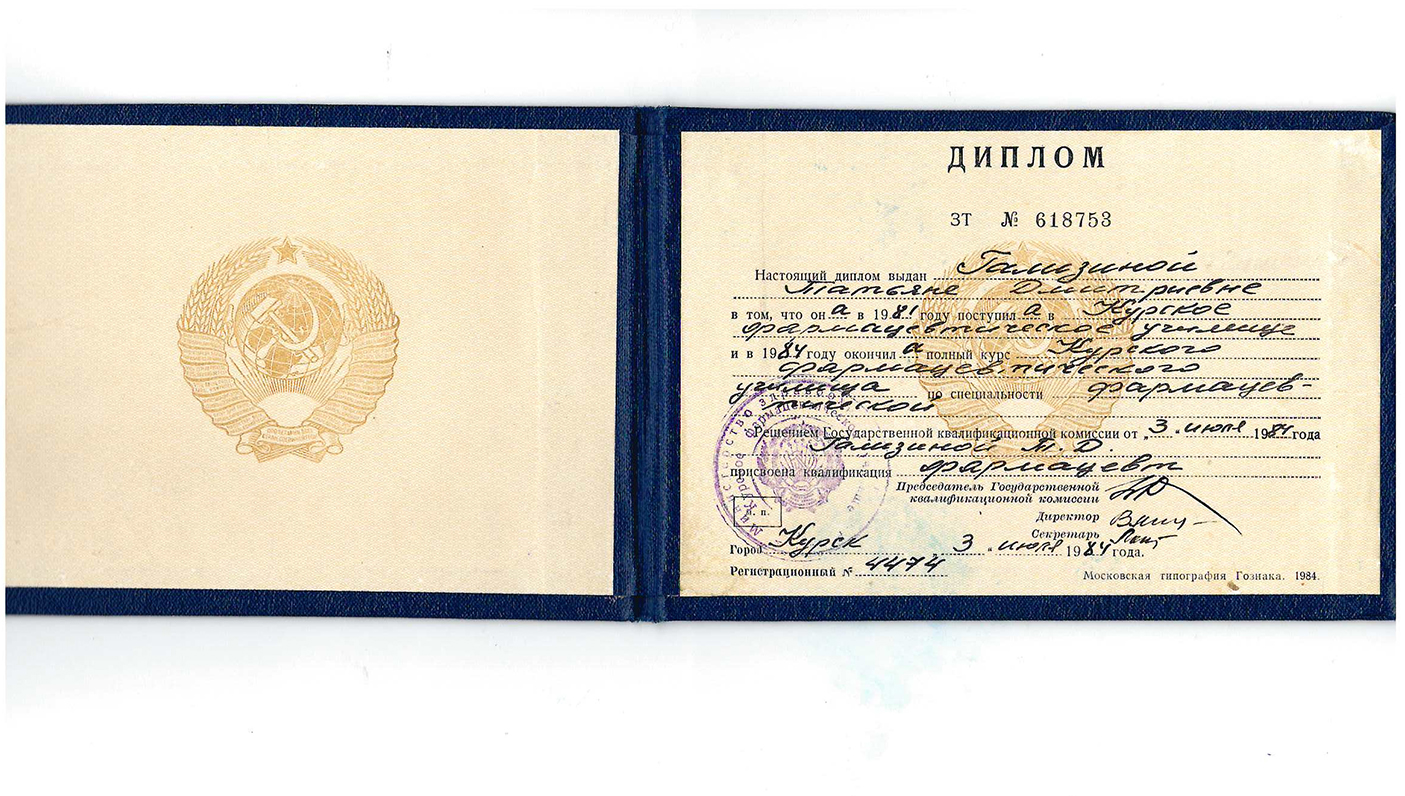 ДИПЛОМ
ЗТ № 618753
Настоящий диплом выдан Гализиной
Татьяне Дмитриевне
в том, что он а в 1981 году поступил а в Курское
фармацевтическое училище
и в 1984 году окончил а полный курс Курского
фармацевтического
училища по специальности фармацев-
тической
Решением Государственной квалификационной комиссии от „ 3 " июля 1984 года
Гализиной Т. Д.
присвоена квалификация фармацевт
Председатель Государственной
квалификационной комиссии
Директор
Секретарь
М. п.
Город Курск 3 " июля 1984 года.
Регистрационный № 4474
Московская типография Гознака. 1984.